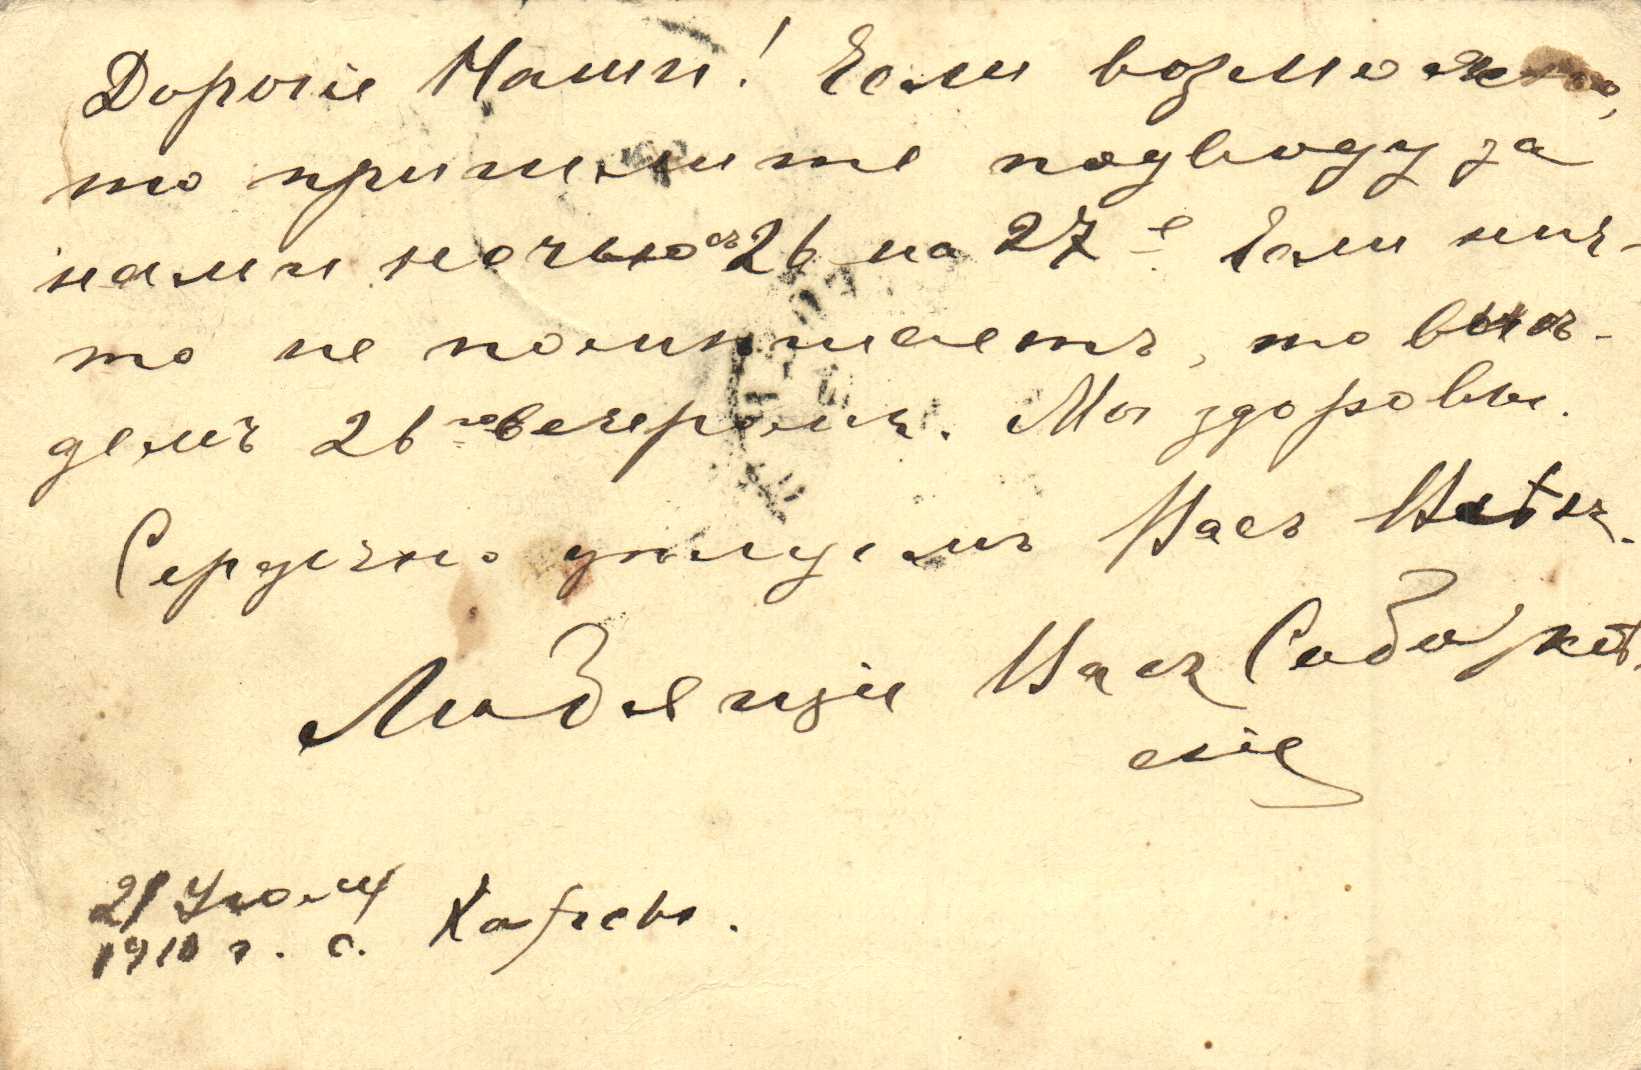 Дорогіе Наши! Если возможно,
то пришлите подводу за
нами ночью съ 26 на 27-е Если нич-
то не помѣшаетъ, то выѣз-
демъ 26-го вечеромъ. Мы здоровы.
Сердечно цѣлуемъ Васъ Всѣхъ.
Любящіе Васъ
скіе
21 Іюня
1910 г. с.